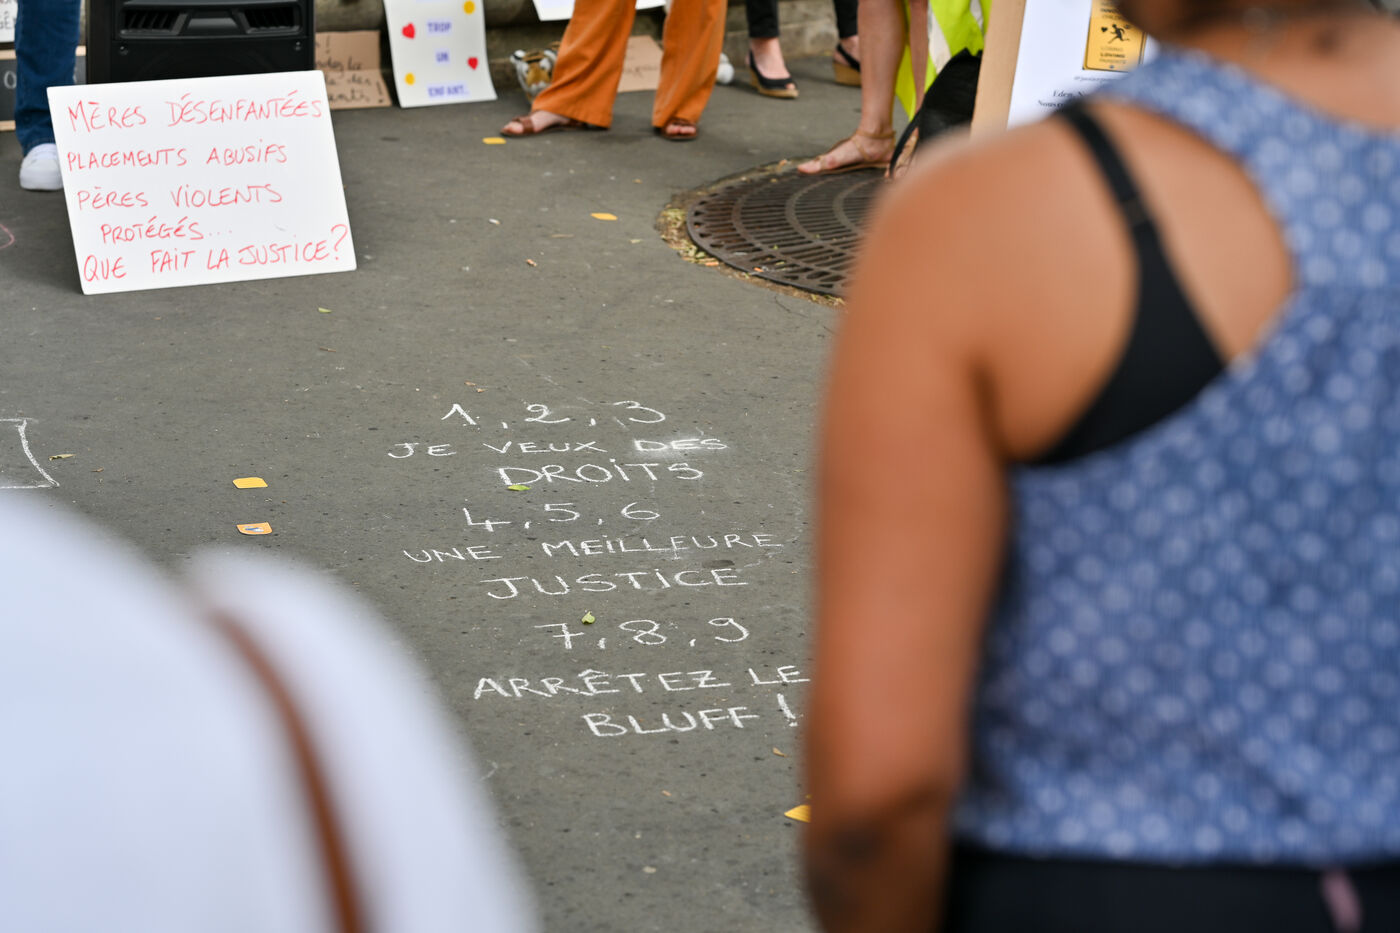 MÈRES DÉSENFANTÉES
PLACEMENTS ABUSIFS
PÈRES VIOLENTS
PROTÉGÉS...
QUE FAIT LA JUSTICE?
TROP
UN
ENFANT...
1, 2, 3
JE VEUX DES
DROITS
4, 5, 6
UNE MEILLEURE
JUSTICE
7, 8, 9
ARRÊTEZ LE
BLUFF !